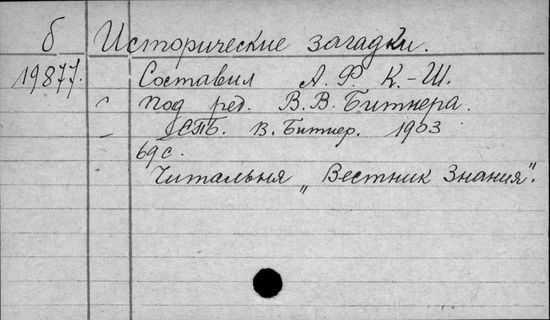 б Исторические загадки.
19877. Составил А. Ф. К.-Ш.
под ред. В. В. Битнера.
СПБ. В. Битнер. 1903
69 с.
Читальня „Вестник Знания".